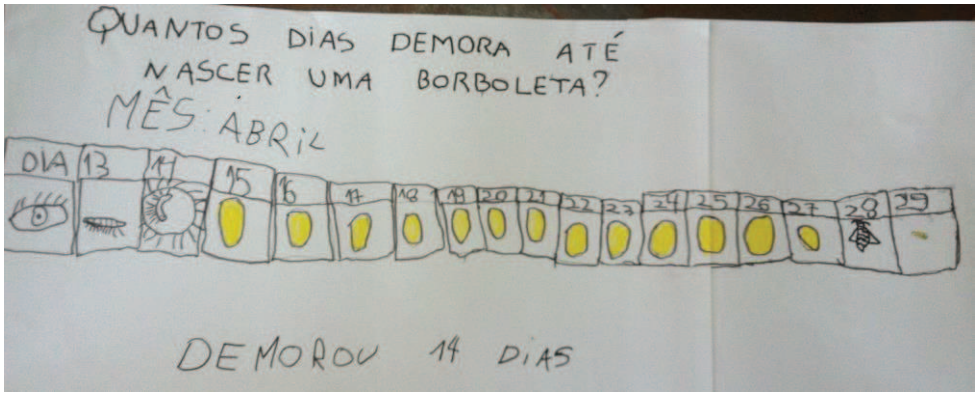 QUANTOS DIAS DEMORA ATÉ
NASCER UMA BORBOLETA?
MÊS: ÁBRIL
DIA 13 14 15 16 17 18 19 20 21 22 23 24 25 26 27 28 29
DEMOROU 14 DIAS